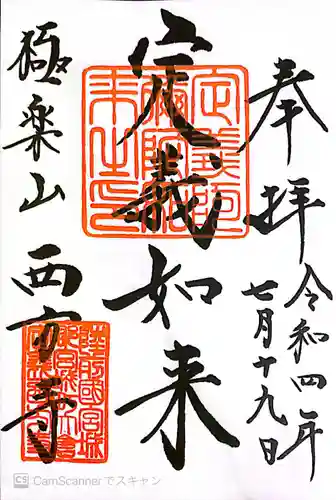 奉拝
令和四年
七月十九日
定義如来
極楽山 西方寺
CS CamScanner でスキャン